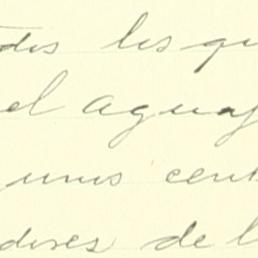 dos los qu
el aguaj
gunos cent
dores de l